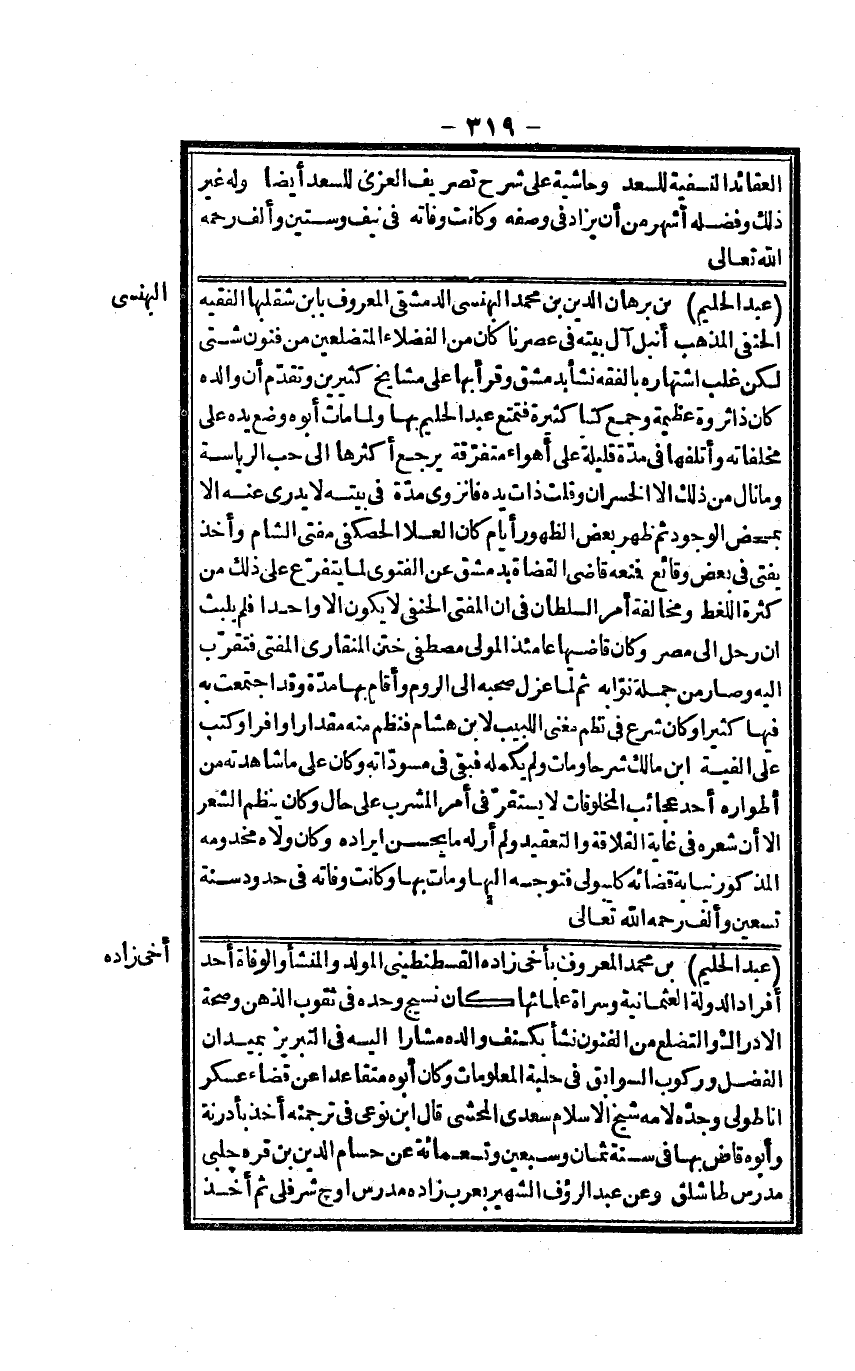 - ٣١٩ -
العقائد النسفية للسعد وحاشية على شرح تصريف العزى للسعد أيضا وله غير
ذلك وفضله أشهر من أن يزاد فى وصفه وكانت وفاته فى نيف وستين وألف رحمه
الله تعالى
البهنسى
(عبد الحليم) بن برهان الدين بن محمد البهنسى الدمشقى المعروف بابن شقلبها الفقيه
الحنفى المذهب أنبل آل بيته فى عصرنا كان من الفضلاء المتضلعين من فنون شتى
لكن غلب اشتهاره بالفقه نشأ بدمشق وقرأ بها على مشايخ كثيرين وتقدّم أن والده
كان ذا ثروة عظيمة وجمع كتبا كثيرة فتمتع عبد الحليم بها ولما مات أبوه وضع يده على
مخلفاته وأتلفها فى مدّة قليلة على أهواء متفرّقة يرجع أكثرها الى حب الرياسة
وما نال من ذلك الا الخسران وقلت ذات يده فانزوى مدّة فى بيته لا يدرى عنه الا
بمحض الوجود ثم ظهر بعض الظهور أيام كان العلا الحصكفى مفتى الشام وأخذ
يفتى فى بعض وقائع فمنعه قاضى القضاة بدمشق عن الفتوى لما يتفرّع على ذلك من
كثرة اللغط ومخالفة أمر السلطان فى ان المفتى الحنفى لا يكون الا واحدا فلم يلبث
ان رحل الى مصر وكان قاضيها عامئذ المولى مصطفى ختن المنقارى المفتى فتقرّب
اليه وصار من جملة نوّابه ثم لما عزل صحبه الى الروم وأقام بها مدّة وقد اجتمعت به
فيها كثيرا وكان شرع فى نظم مغنى اللبيب لابن هشام فنظم منه مقدارا وافرا وكتب
على الفية ابن مالك شرحا ومات ولم يكمله فبقى فى مسودّاته وكان على ما شاهدته من
أطواره أحد عجائب المخلوقات لا يستقرّ فى أمر المشرب على حال وكان ينظم الشعر
الا أن شعره فى غاية القلاقة والتعقيد ولم أر له ما يحسن ايراده وكان ولاه مخدومه
المذكور نيابة قضائه كليبولى فتوجه اليها ومات بها وكانت وفاته فى حدود سنة
تسعين وألف رحمه الله تعالى
أخى زاده
(عبد الحليم) بن محمد المعروف بأخى زاده القسطنطينى المولد والمنشأ والوفاة أحد
أفراد الدولة العثمانية وسراة علمائها كان نسيج وحده فى ثقوب الذهن وصحة
الادراك والتضلع من الفنون نشأ بكنف والده مشارا اليه فى التبريز بميدان
الفضل وركوب السوابق فى حلبة المعلومات وكان أبوه متقاعدا عن قضاء عسكر
اناطولى وجدّه لامه شيخ الاسلام سعدى المحشى قال ابن نوعى فى ترجمته أخذ بأدرنة
وأبوه قاض بها فى سنة ثمان وسبعين وتسعمائة عن حسام الدين بن قره چلبى
مدرس طاشلق وعن عبد الرؤف الشهير بعرب زاده مدرس اوچ شرفلى ثم أخذ